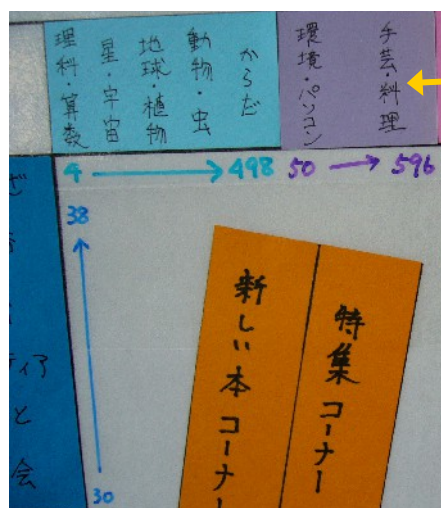 手芸・料理
環境・パソコン
からだ
動物・虫
地球・植物
星・宇宙
理科・算数
4 → 498 50 → 596
38
30
特集コーナー
新しい本コーナー
ティア
と
会